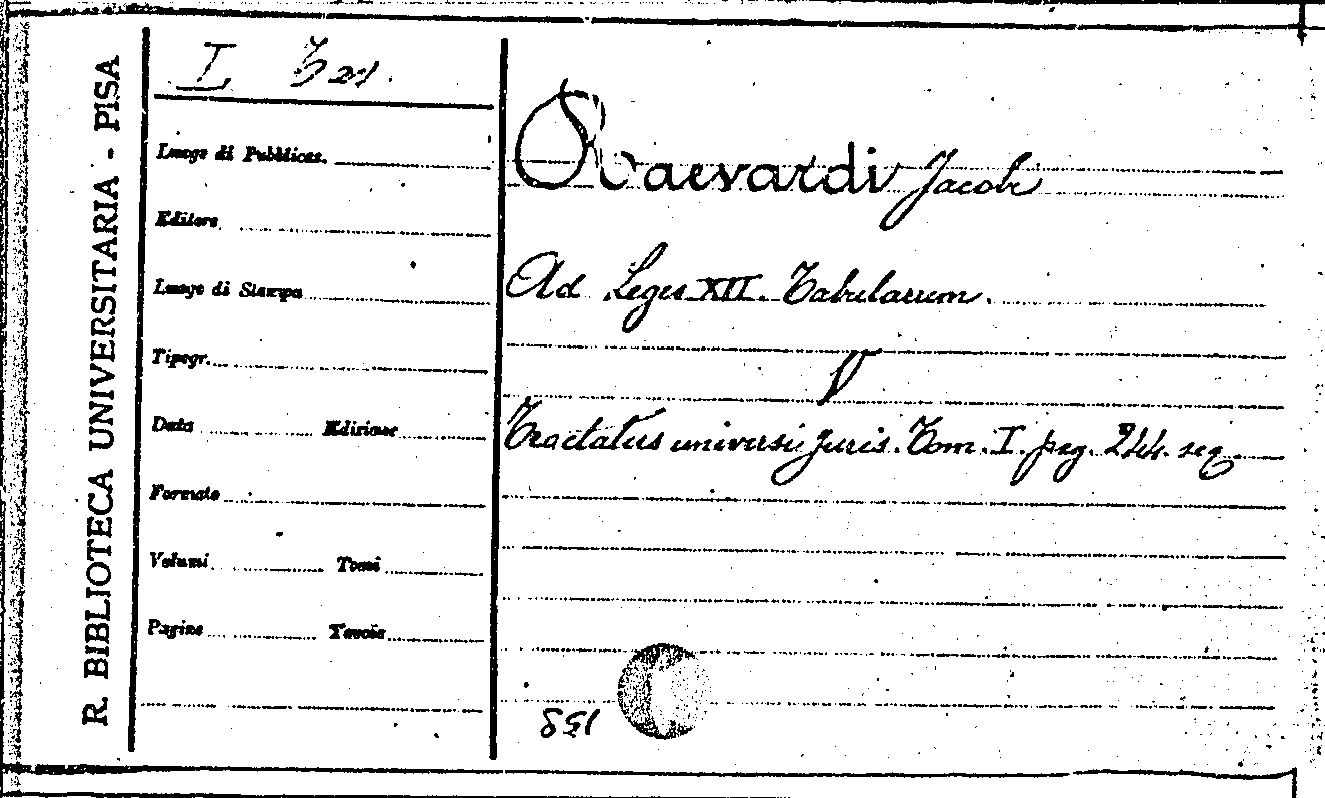 R. BIBLIOTECA UNIVERSITARIA - PISA
I
Luogo di Pubblicaz.
Editore
Luogo di Stampa
Tipogr.
Data Edizione
Formato
Volumi Tomi
Pagine Tavole
Raevardi Jacobi
Ad Leges XII. Tabularum.
Tractatus universi juris. Tom. I. pag. 244. seq